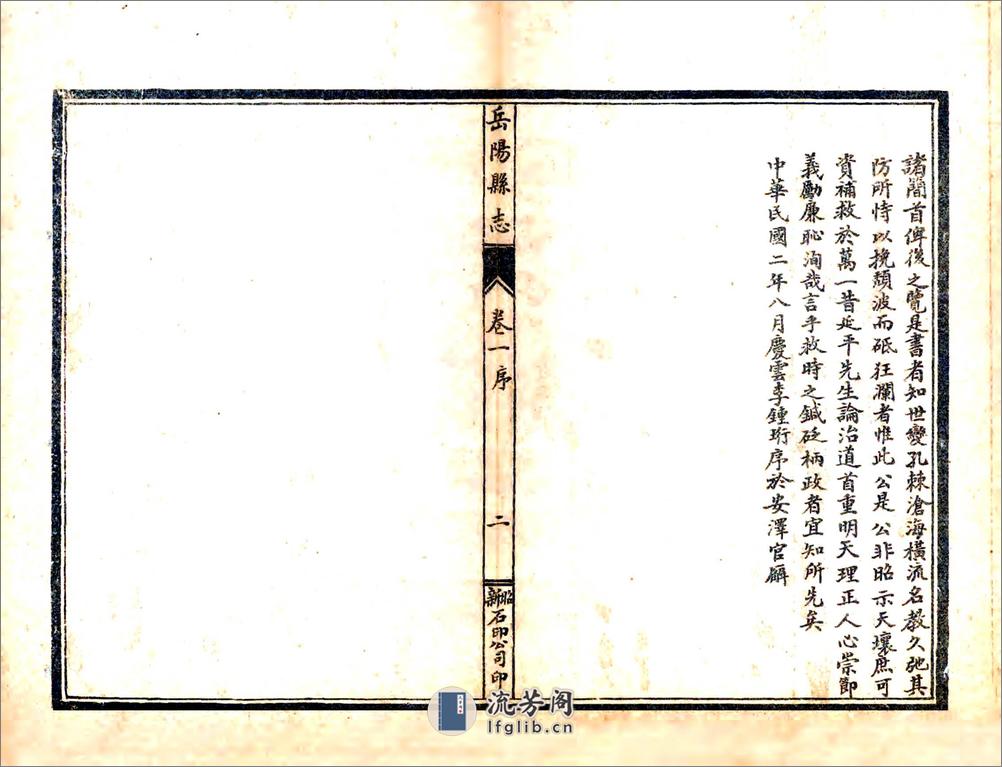 諸簡首俾後之覽是書者知世變孔棘滄海橫流名教久弛其
防所恃以挽頹波而砥狂瀾者惟此公是公非昭示天壤庶可
資補救於萬一昔延平先生論治道首重明天理正人心崇節
義勵廉恥洵哉言乎救時之鍼砭柄政者宜知所先矣
中華民國二年八月慶雲李鍾珩序於安澤官廨
岳陽縣志
卷一序
二
昭新石印公司印
流芳阁
lfglib.cn